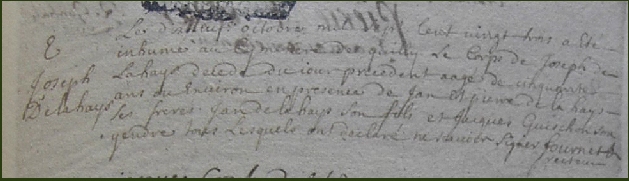 Les dixhuit octobre mil sept Cent vingt trois a este
E inhumé au Cymetiere de Quilly Le Corps de Joseph de
Joseph Lahays decedé du jour précedent aagé de cinquante
Delahays ans ou Environ en presence de Jan et pierre de la hays
Ses freres Jan de lahays Son fils et Jacques Guischon son
gendre tous Lesquels ont declaré ne scavoir Signer Journet
recteur